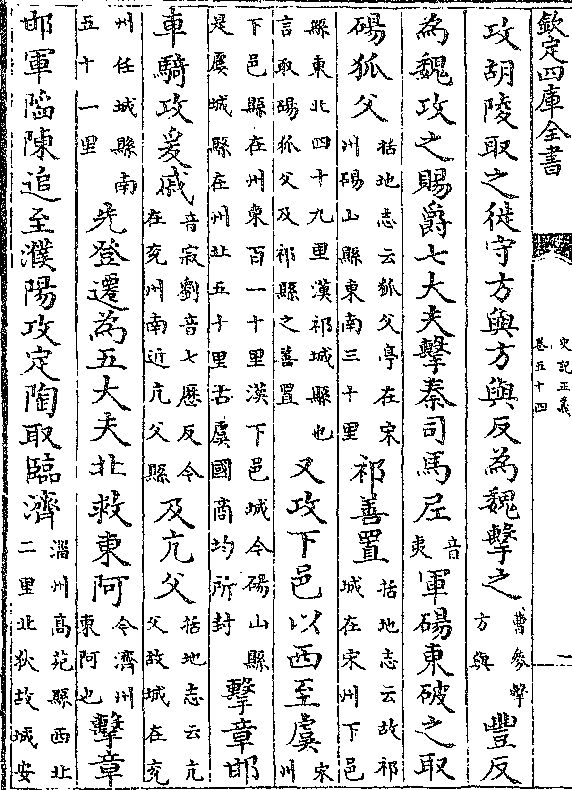 欽定四庫全書
史記正義
卷五十四
一
攻胡陵取之徙守方與方與反為魏擊之曹參擊方與豐反
為魏攻之賜爵七大夫擊秦司馬㞐音夷軍碭東破之取
碭狐父括地志云狐父亭在宋州碭山縣東南三十里祁善置括地志云故祁城在宋州下邑
縣東北四十九里漢祁城縣也言取碭狐父及祁縣之善置又攻下邑以西至虞宋州
下邑縣在州東百一十里漢下邑城今碭山縣是虞城縣在州北五十里古虞國商均所封擊章邯
車騎攻爰戚音寂劉音七歷反今在兖州南近亢父縣及亢父括地志云亢父故城在兖
州任城縣南五十一里先登遷為五大夫北救東阿今濟州東阿也擊章
邯軍陷陳追至濮陽攻定陶取臨濟淄州高苑縣西北二里北狄故城安